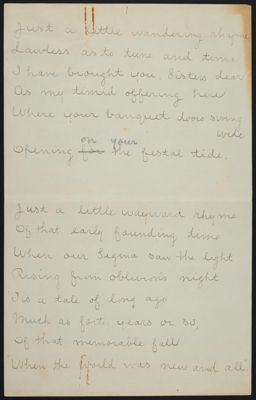 Just a little wandering rhyme
Lawless as to tune and time
I have brought you, Sisters dear
As my timid offering here
Where your banquet doors swing
wide
on your
Opening for the festal tide.
Just a little wayward rhyme
Of that early founding time
When our Sigma saw the light
Rising from oblivion's night
'Tis a tale of long ago
Much as forty years or so,
Of that memorable fall
"When the world was new and all".